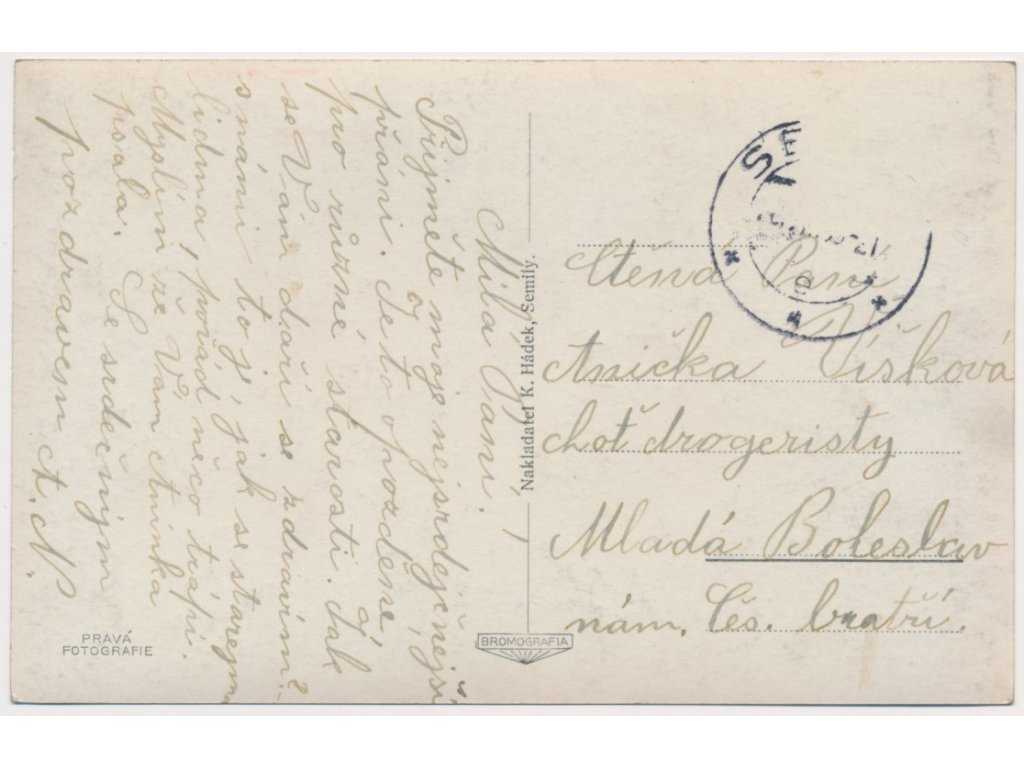 Milá Paní!
Přijměte moje nejsrdejčnejší
přání. Je to opozděné, a
pro různé starosti. Jak
se Vám daří se zdravím?
s námi to j' jak se starejma
lidma, pořád něco trápi.
Myslím že Vám Aninka
psala. Se srdečným
pozdravem A. N.
Nakladatel K. Hádek, Semily.
PRAVÁ
FOTOGRAFIE
BROMOGRAFIA
SE
Ctěná Paní
Anička Víšková
choť drogeristy
Mladá Boleslav
nám. Čes. bratří.